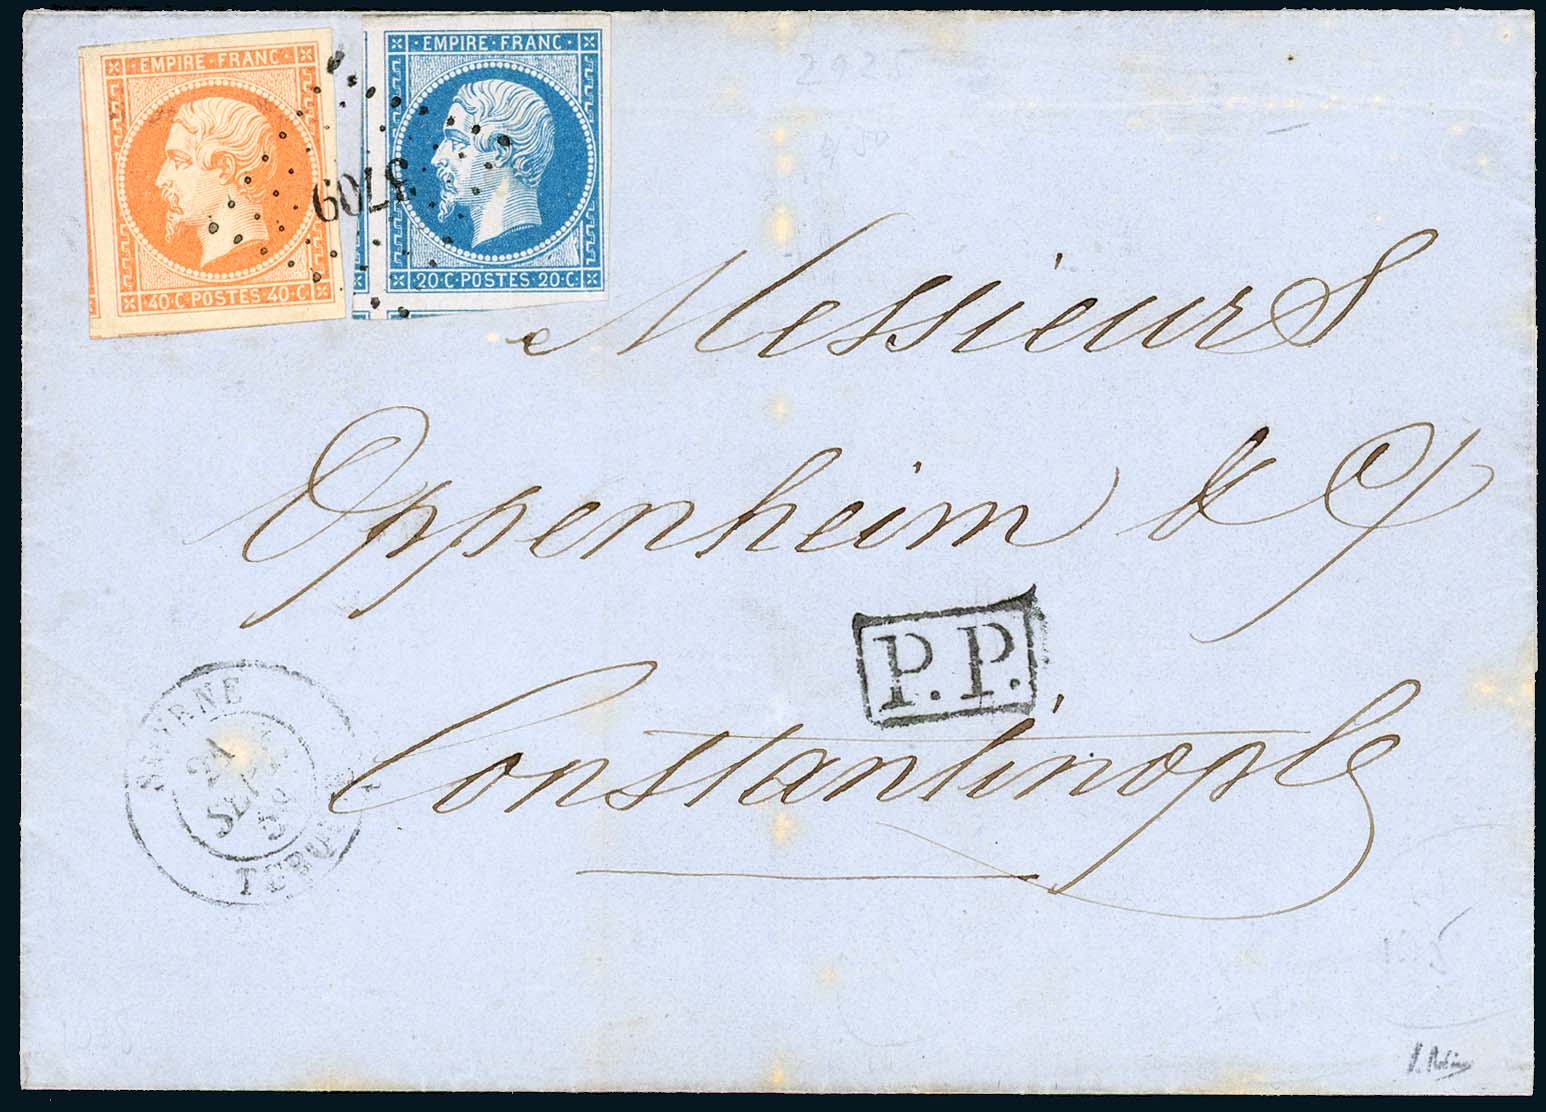 EMPIRE · FRANC ·
40 · C · POSTES 40 · C
· EMPIRE · FRANC ·
20 · C · POSTES 20 · C
3709
2925
Messieurs
Oppenheim & Cy
P.P.
Constantinople
SMYRNE
21
SEPT.
TURQUIE